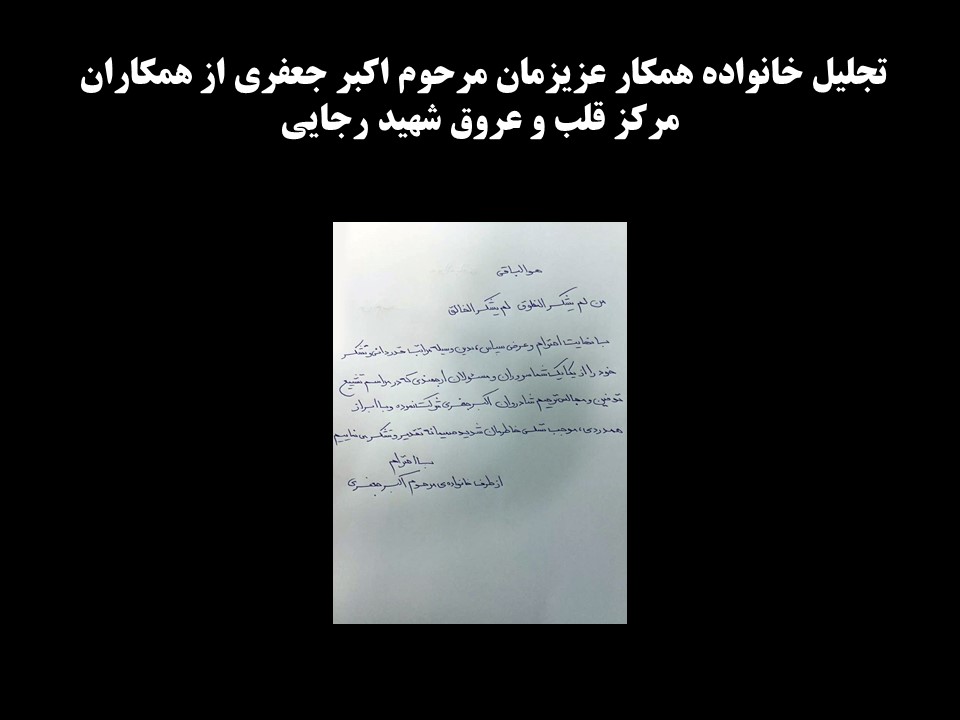 تجلیل خانواده همکار عزیزمان مرحوم اکبر جعفری از همکاران
مرکز قلب و عروق شهید رجایی
هوالباقی
من لم یشکر المخلوق لم یشکر الخالق
با نهایت احترام و عرض سپاس، بدین وسیله مراتب قدردانی و تشکر
خود را از یکایک شما سروران و مسئولان ارجمندی که در مراسم تشییع
تدفین و مجالس ترحیم شادروان اکبر جعفری شرکت نموده و با ابراز
همدردی، موجب تسلی خاطرمان شدید صمیمانه تقدیر و تشکر می نماییم
با احترام
از طرف خانواده ی مرحوم اکبر جعفری